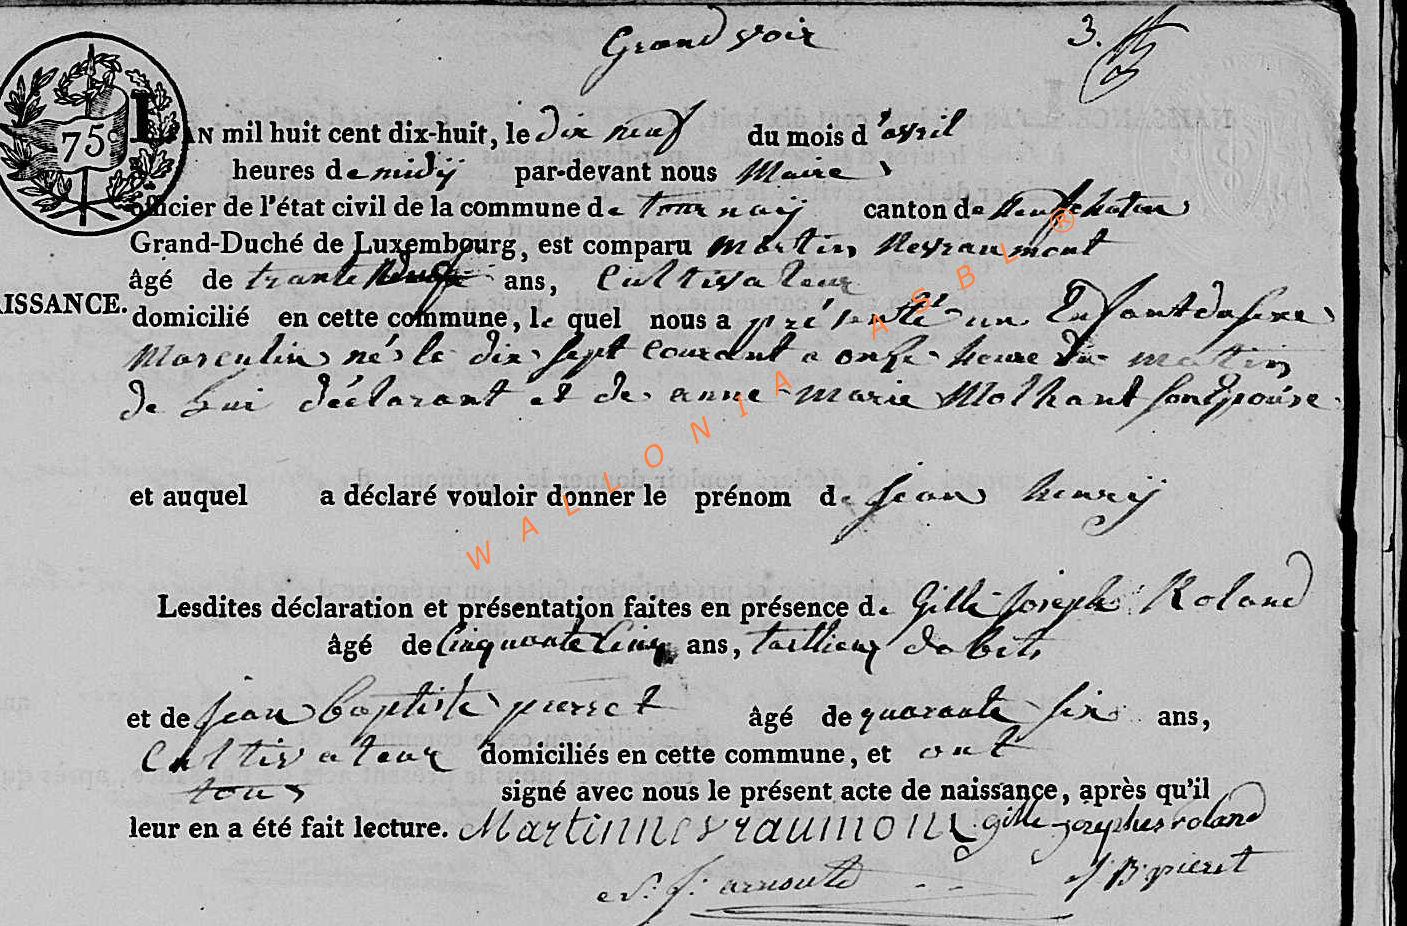 Grand voir 3.
75c
L'AN mil huit cent dix-huit, le dix neuf du mois d'avril
heures de midÿ par-devant nous Maire
officier de l'état civil de la commune de tournaÿ canton de Neufchateau
Grand-Duché de Luxembourg, est comparu martin Nevraumont
âgé de trante neuf ans, Cultivateur
AISSANCE.
domicilié en cette commune, le quel nous a présenté un Enfant du sexe
Masculin né le dix sept courant a onze heure du matin
de lui déclarant et de anne marie Molhant son Epouse
et auquel a déclaré vouloir donner le prénom de jean henrÿ
Lesdites déclaration et présentation faites en présence de Gille joseph Roland
âgé de Cinquante Cinq ans, taillieur dabits
et de jean baptiste pierret âgé de quarante six ans,
Cultivateur domiciliés en cette commune, et ont
tous signé avec nous le présent acte de naissance, après qu'il
leur en a été fait lecture. Martin Nevraumont gille josephes roland
J. arnould J B pieret
WALLONIA ASBL ®